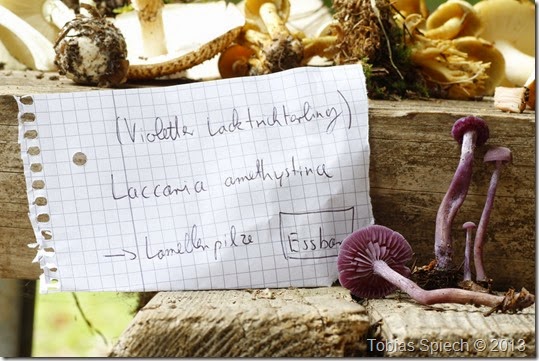 (Violetter Lacktrichterling)
Laccaria amethystina
→ Lamellenpilze Essbar
Tobias Spiech © 2013